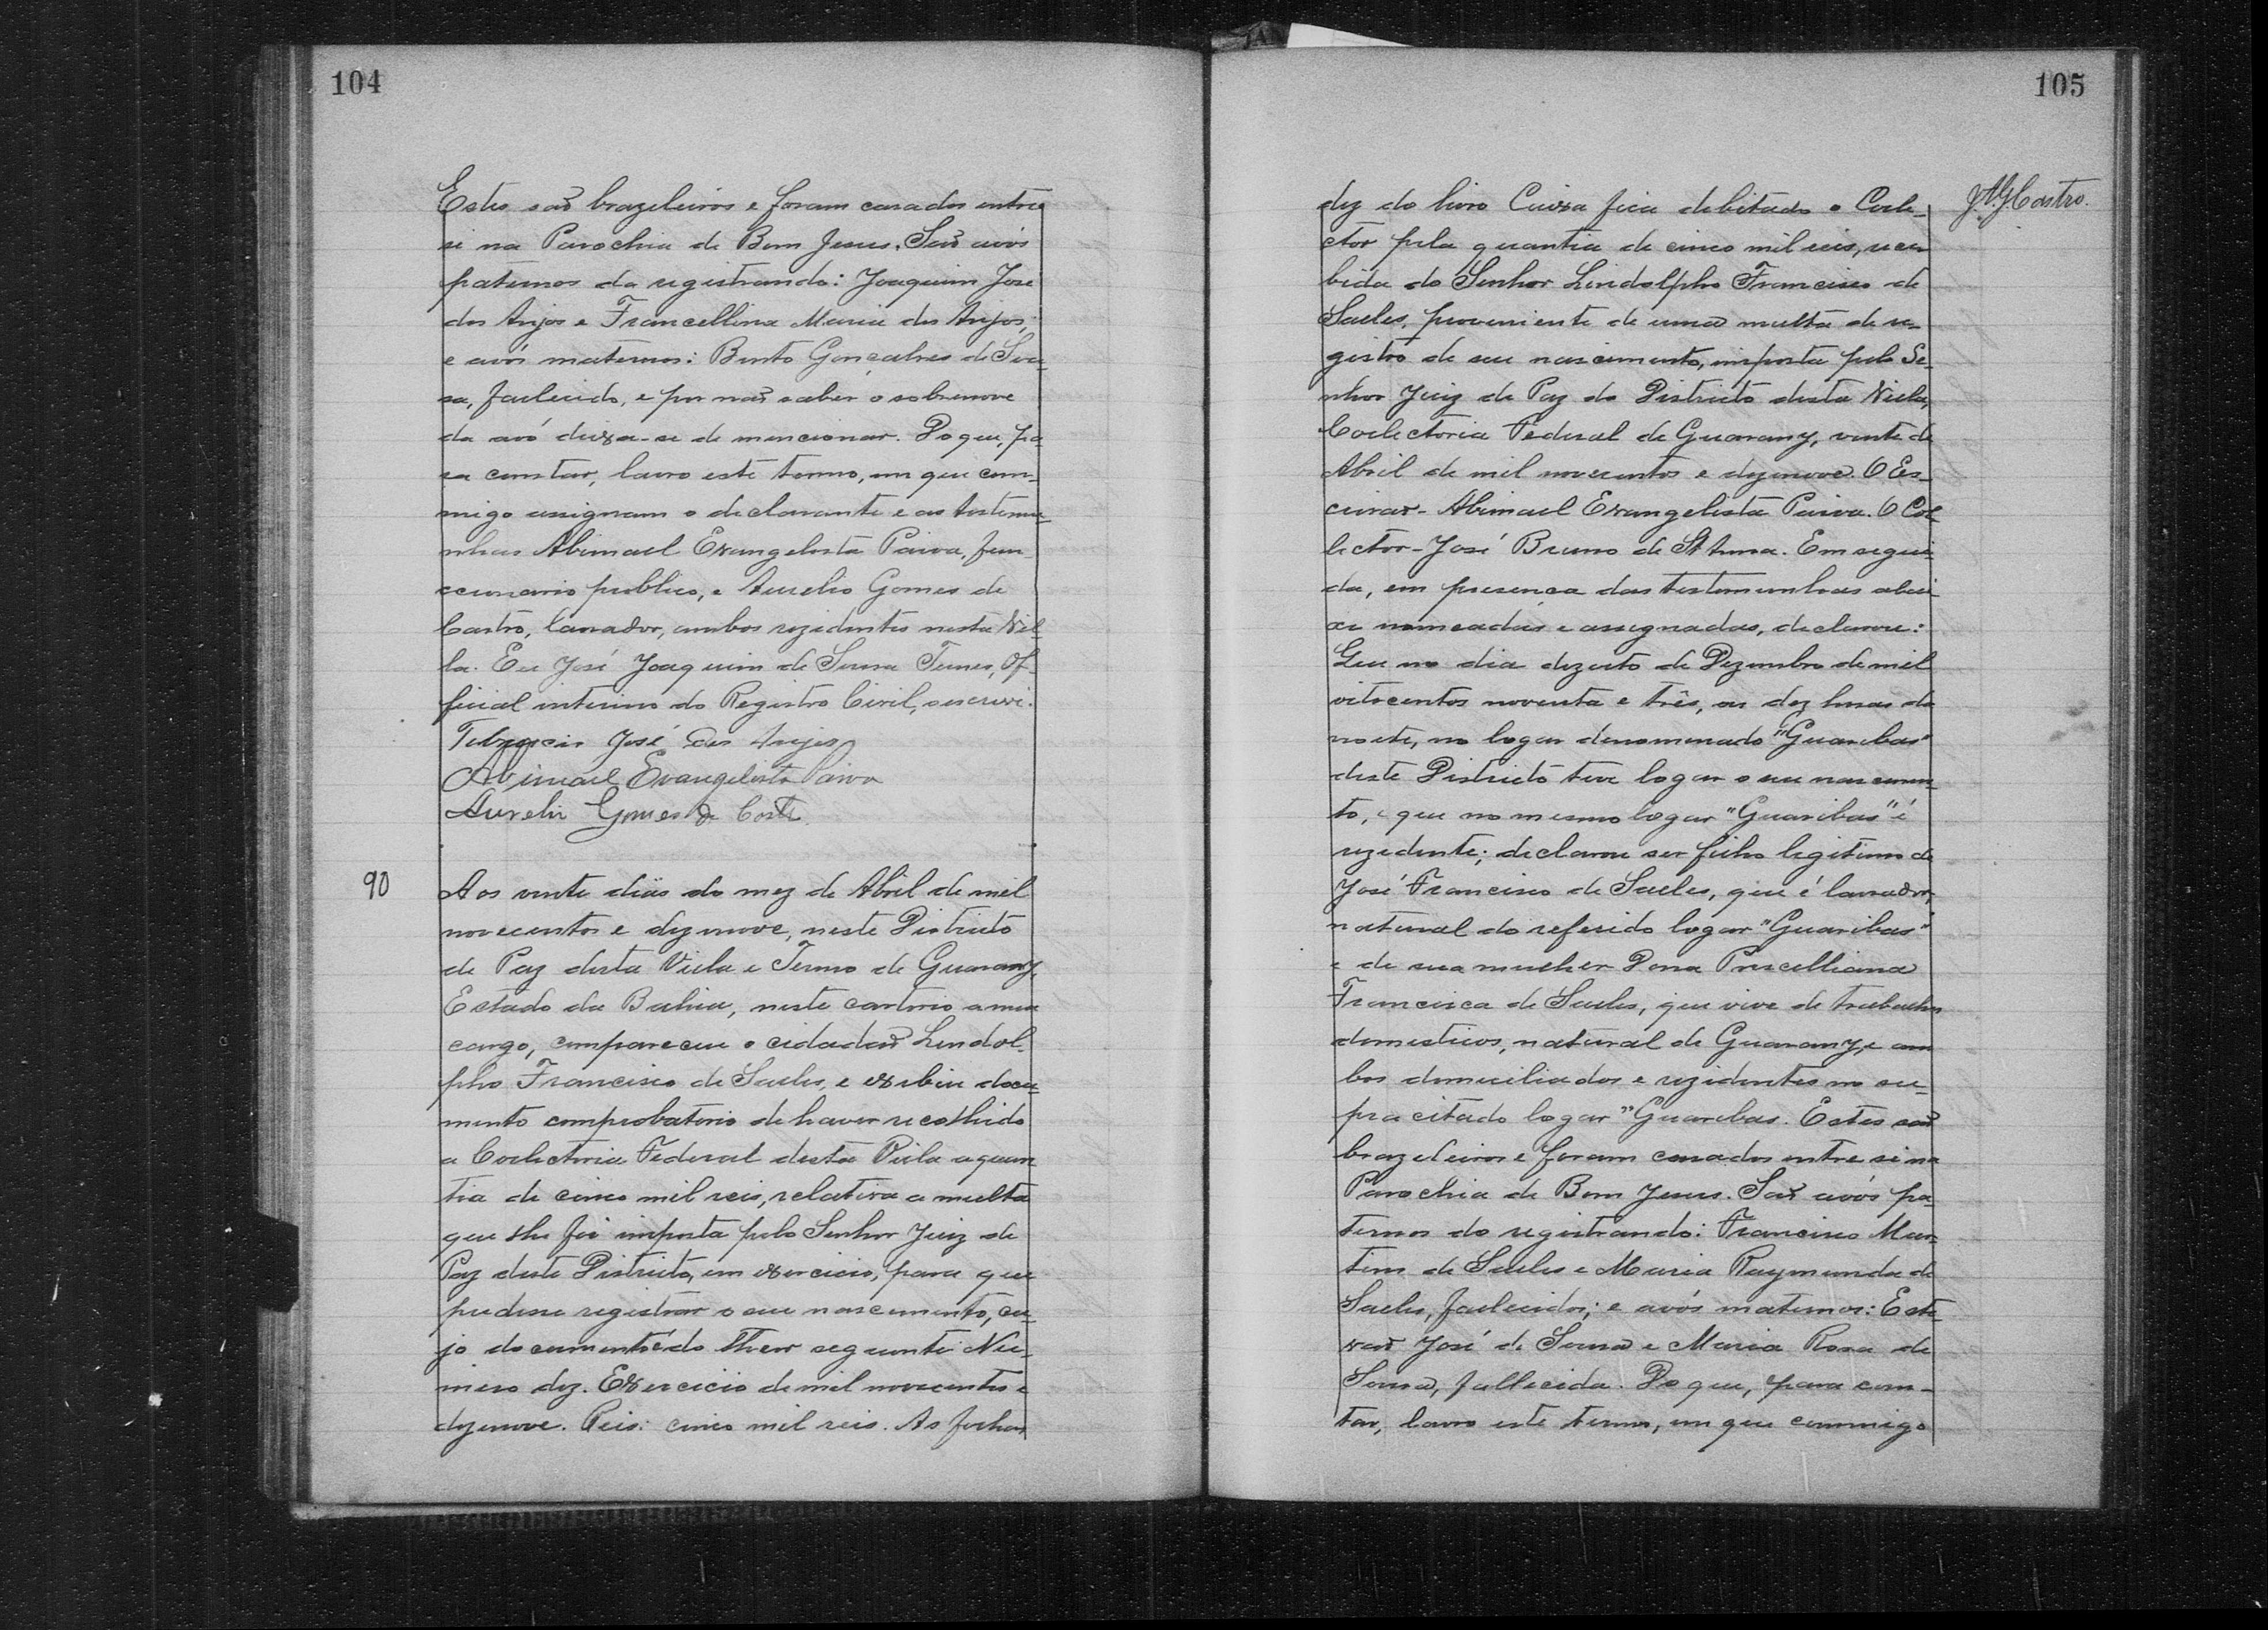 104
Estes são brazileiros e foram casados entre
si na Parochia de Bom Jesus. São avós
paternos do registrando: Joaquim José
dos Anjos e Francellina Maria dos Anjos,
e avós maternos: Bento Gonçalves de Sou-
sa, fallecido, e por não saber o sobrenome
da avó deixa-se de mencionar. Do que, pa
ra constar, lavro este termo, em que com-
migo assignam o declarante e as testemu-
nhas Abimael Evangelista Paiva, fun-
ccionario publico, e Aurelio Gomes de
Castro, lavrador, ambos rezidentes nesta Vil-
la. Eu José Joaquim de Senna Of-
ficial interino do Registro Civil, escrevi.
José dos Anjos
Abimael Evangelista Paiva
Aurelio Gomes de Castro
90
Aos vinte dias do mez de Abril de mil
novecentos e dezenove, neste Districto
de Paz desta Villa e Termo de Guarany,
Estado da Bahia, neste cartorio a meu
cargo, compareceu o cidadão Lindol-
pho Francisco de Salles, e exibiu docu-
mento comprobatorio de haver recolhido
a Collectoria Federal desta Villa a quan
tia de cinco mil reis, relativa a multa
que lhe foi imposta pelo Senhor Juiz de
Paz deste Districto, em exercicio, para que
pudesse registrar o seu nascimento, cu-
jo documento é do theor seguinte: Nu-
mero dez. Exercicio de mil novecentos e
dezenove. Reis: cinco mil reis. As folhas
105
dez do livro Caixa fica debitado o Colle-
ctor pela quantia de cinco mil reis, rece
bida do Senhor Lindolpho Francisco de
Salles, proveniente de uma multa de re-
gistro de seu nascimento, imposta pelo Se-
nhor Juiz de Paz do Districto desta Villa,
Collectoria Federal de Guarany, vinte de
Abril de mil novecentos e dezenove. O Es-
crivão - Abimael Evangelista Paiva. O Col-
lector - José Bruno de St Anna. Em segui-
da, em presença das testemunhas abai-
xo nomeadas e assignadas, declarou:
Que no dia dezoito de Dezembro de mil
oitocentos noventa e três, as dez horas da
noite, no logar denominado "Guaribas"
deste Districto teve logar o seu nascimen-
to, e que no mesmo logar "Guaribas" é
rezidente; declarou ser filho legitimo de
José Francisco de Salles, que é lavrador,
natural do referido logar "Guaribas"
e de sua mulher Dona Priscelliana
Francisca de Salles, que vive de trabalhos
domesticos, natural de Guarany, e am
bos domiciliados e rezidentes no su-
pra citado logar "Guaribas. Estes são
brazeleiros e foram casados entre si na
Parochia de Bom Jesus. São avós pa-
ternos do registrando: Francisco Mar-
tins de Salles e Maria Raymunda de
Salles, fallecidos; e avós maternos: Este-
vão José de Sousa e Maria Rosa de
Sousa, fallecida. Do que, para cons-
tar, lavro este termo, em que commigo